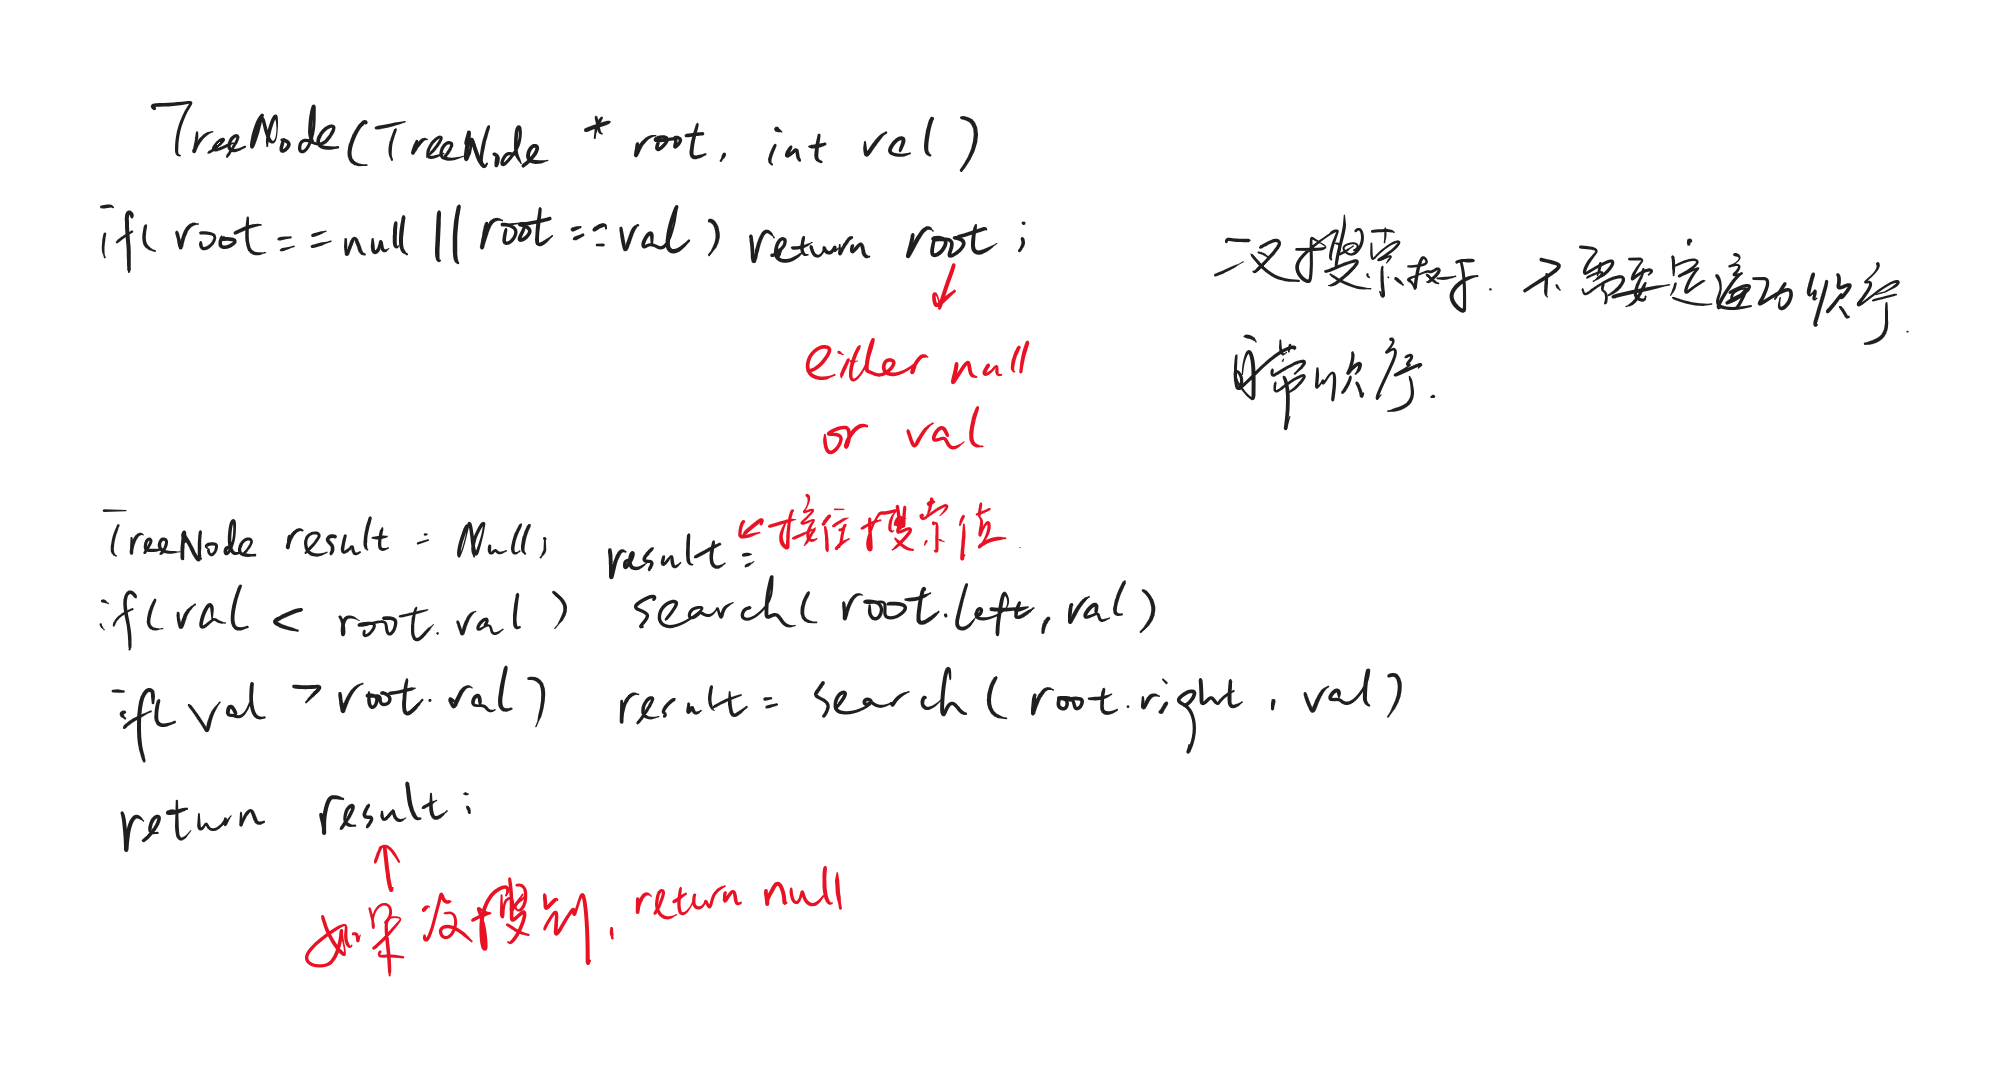 TreeNode(TreeNode * root, int val)
if(root==null || root==val) return root;
either null
or val
二叉搜索树. 不需要定遍历顺序.
自带顺序.
TreeNode result = Null;
result =
接住搜索值
if(val < root.val) search(root.left, val)
if(val > root.val) result = search(root.right, val)
return result;
如果没搜到, return null